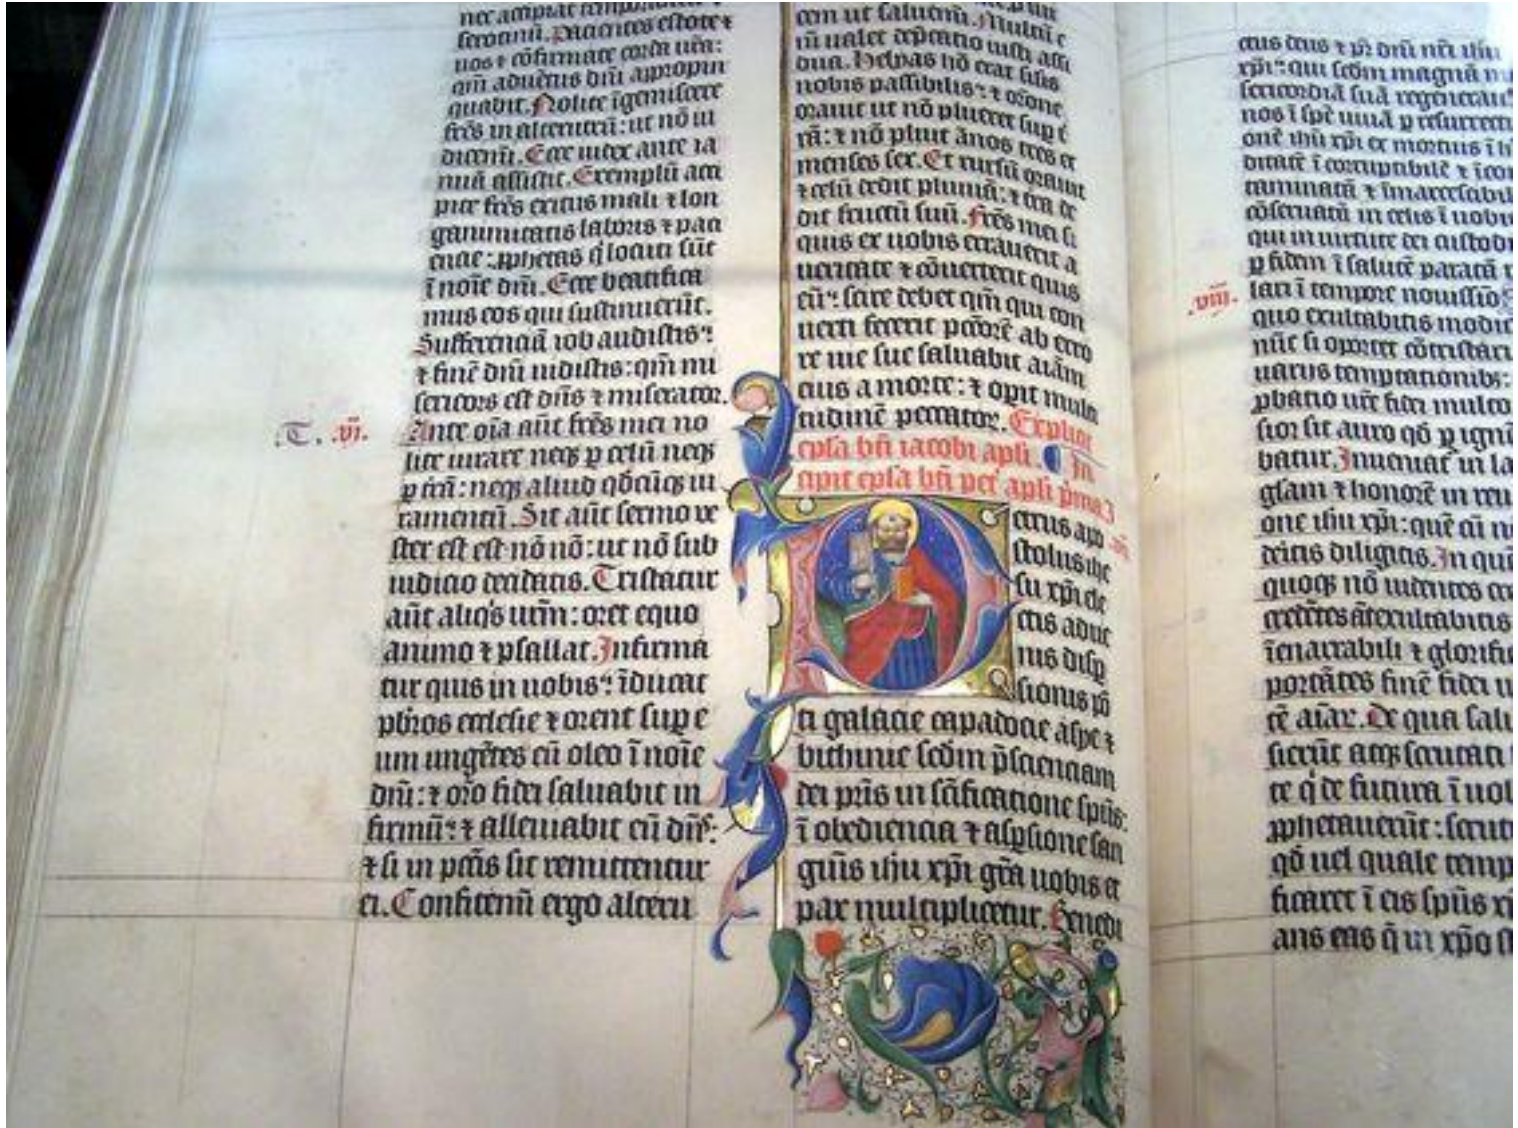 serotinū. Pacientes estote ⁊
uos ⁊ cōfirmate corda ur̄a:
qm̄ aduētus dn̄i appropin
quabit. Nolite īgemiscere
fr̄es in alterutrū: ut nō iu
dicemī. Ecce iudex ante ia
nuā assistit. Exemplū acci
pite fr̄es exitus mali ⁊ lon
ganimitatis laboris ⁊ paci
encie: ꝓphetas q̇ locuti sūt
ī noīe dn̄i. Ecce beatifica
mus eos qui sustinuerūt.
Sufferenciā iob audistis:
⁊ finē dn̄i uidistis: qm̄ mi
sericors est dn̄s ⁊ miserator.
.T. .vi. Ante oīa aūt fr̄es mei no
lite iurare neqꝫ ꝑ celū neqꝫ
ꝑ trā̄: neqꝫ aliud qdcūqꝫ iu
ramentū. Sit aūt sermo ve
ster est est nō nō: ut nō sub
iudicio decidatis. Tristatur
aūt aliq̇s urm̄: oret equo
animo ⁊ psallat. Infirma
tur quis in uobis: īducat
pbr̄os ecclesie ⁊ orent suꝑ e
um ungētes eū oleo ī noīe
dn̄i: ⁊ orō fidei saluabit in
firmū: ⁊ alleuiabit eū dn̄s:
⁊ si in pctīs sit remittentur
ei. Confitemī ergo alteru
cem ut saluemī. Multū ē
ī ualet dep̄catio iusti assi
dua. Helyas hō erat silis
nobis passibilis: ⁊ orōne
orauit ut nō plueret suꝑ t̄
rā: ⁊ nō pluit ānos tres et
menses sex. Et rursū orauit
⁊ celū dedit pluuiā: ⁊ t̄ra de
dit fructū suū. Fr̄es mei si
quis ex uobis errauerit a
ueritate ⁊ cōuerterit quis
eū: scire debet qm̄ qui con
uerti fecerit pctōrē ab erro
re uie sue saluabit aīam
eius a morte: ⁊ opit multi
tudinē peccatoꝝ. Explicit
epl̄a bt̄i iacobi apl̄i. In
cipit epl̄a bt̄i pet̄ apl̄i p̄ma
Petrus apo
stolus ihe
su xp̄i ele
ctis adue
nis disꝑ
sionis pō
ti galacie capadocie asye ⁊
bithinie scdm̄ p̄scienciam
dei pr̄is in sc̄ificatione spūs:
ī obediencia ⁊ asꝑsione san
guīs ihu xp̄i gr̄a uobis et
pax multiplicetur. Benedi
ctus deus ⁊ pr̄ dn̄i nr̄i ihu
xp̄i: qui scdm̄ magnā
sericordiā suā regenerau
nos ī spē uiuā ꝑ resurrecti
onē ihu xp̄i ex mortuis ī
ditatē ī corruptibilē ⁊ īcon
taminatā ⁊ īmarcescabil
cōseruatā in celis ī uobis
qui in uirtute dei custodi
ꝑ fidem ī salutē paratā
.viii. lari ī tempore nouissīo
quo exultabitis modic
nūc si oportet cōtristari
uariis temptationibꝫ:
ꝓbatio ur̄e fidei multo
sior sit auro qd̄ ꝑ ignē
batur. Inueniat̄ in la
glām ⁊ honorē in reu
one ihu xp̄i: quē cū
deitis diligitis. In quē
quoqꝫ nō uidentes
īenarrabili ⁊ glorifi
portātes finē fidei
tē aīaꝝ. De qua salu
sierūt atqꝫ scrutati
te q̇ de futura ī uob
ꝓphetauerūt: scrut
qd̄ uel quale temp
ficaret ī eis spūs